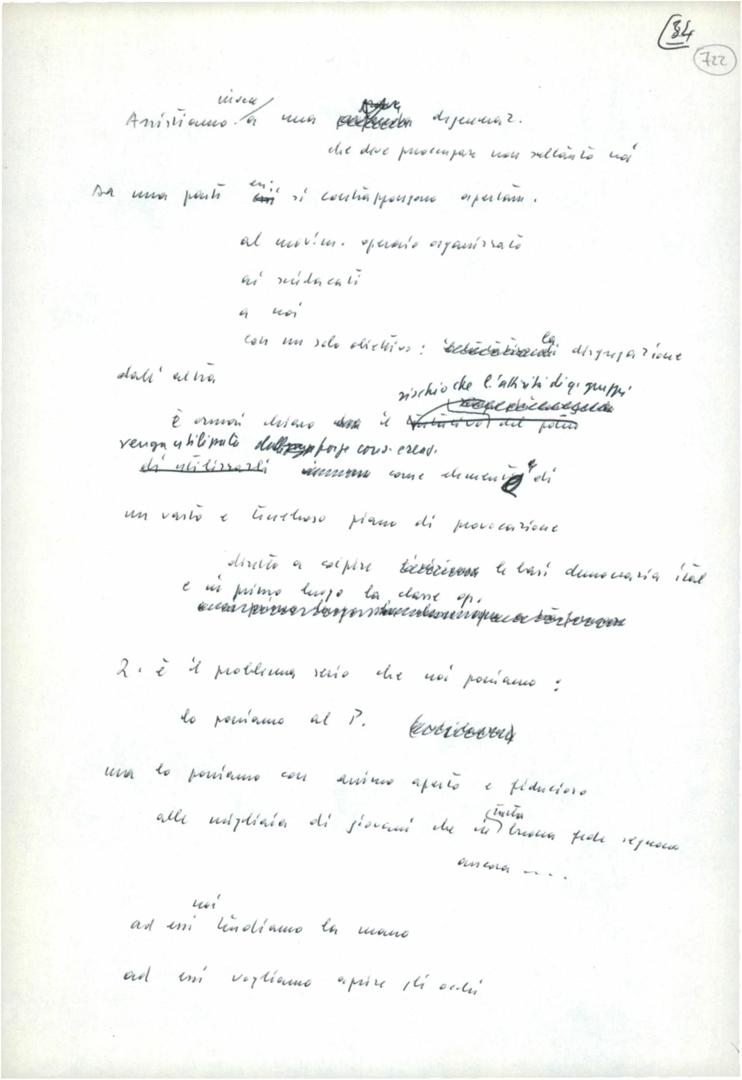 34
722
invece
Assistiamo a una degeneraz.
che deve preoccupare non soltanto noi
Da una parte essi si contrappongono apertam.
al movim. operaio organizzato
ai sindacati
a noi
con un solo obiettivo: la disgregazione
dall'altra
rischio che l'attività di q. gruppi
È ormai chiaro il
venga utilizzata forze cons. e reaz.
di utilizzarli come elemento e di
un vasto e tenebroso piano di provocazione
diretto a colpire le basi democrazia ital
e in primo luogo la classe op.
2. è il problema serio che noi poniamo:
lo poniamo al P.
ma lo poniamo con animo aperto e fiducioso
tutta
alle migliaia di giovani che in buona fede seguono
ancora ....
noi
ad essi tendiamo la mano
ad essi vogliamo aprire gli occhi